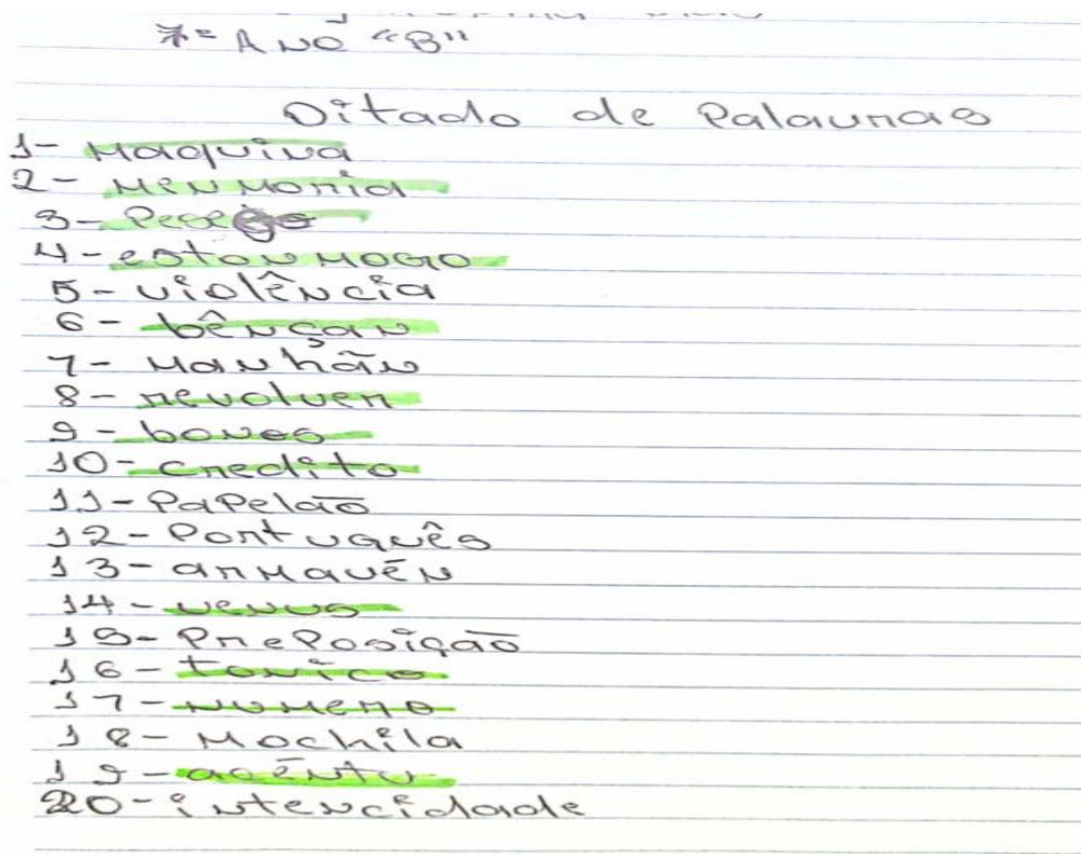 7º Ano "B"
Ditado de Palavras
1- Maquina
2- Menmoria
3- Pesego
4- estonmogo
5- violência
6- bênçan
7- Manhãn
8- revolver
9- bones
10- credito
11- Papelão
12- Português
13- armavén
14- venus
15- Preposição
16- tonico
17- numero
18- Mochila
19- acêntu
20- intencidade